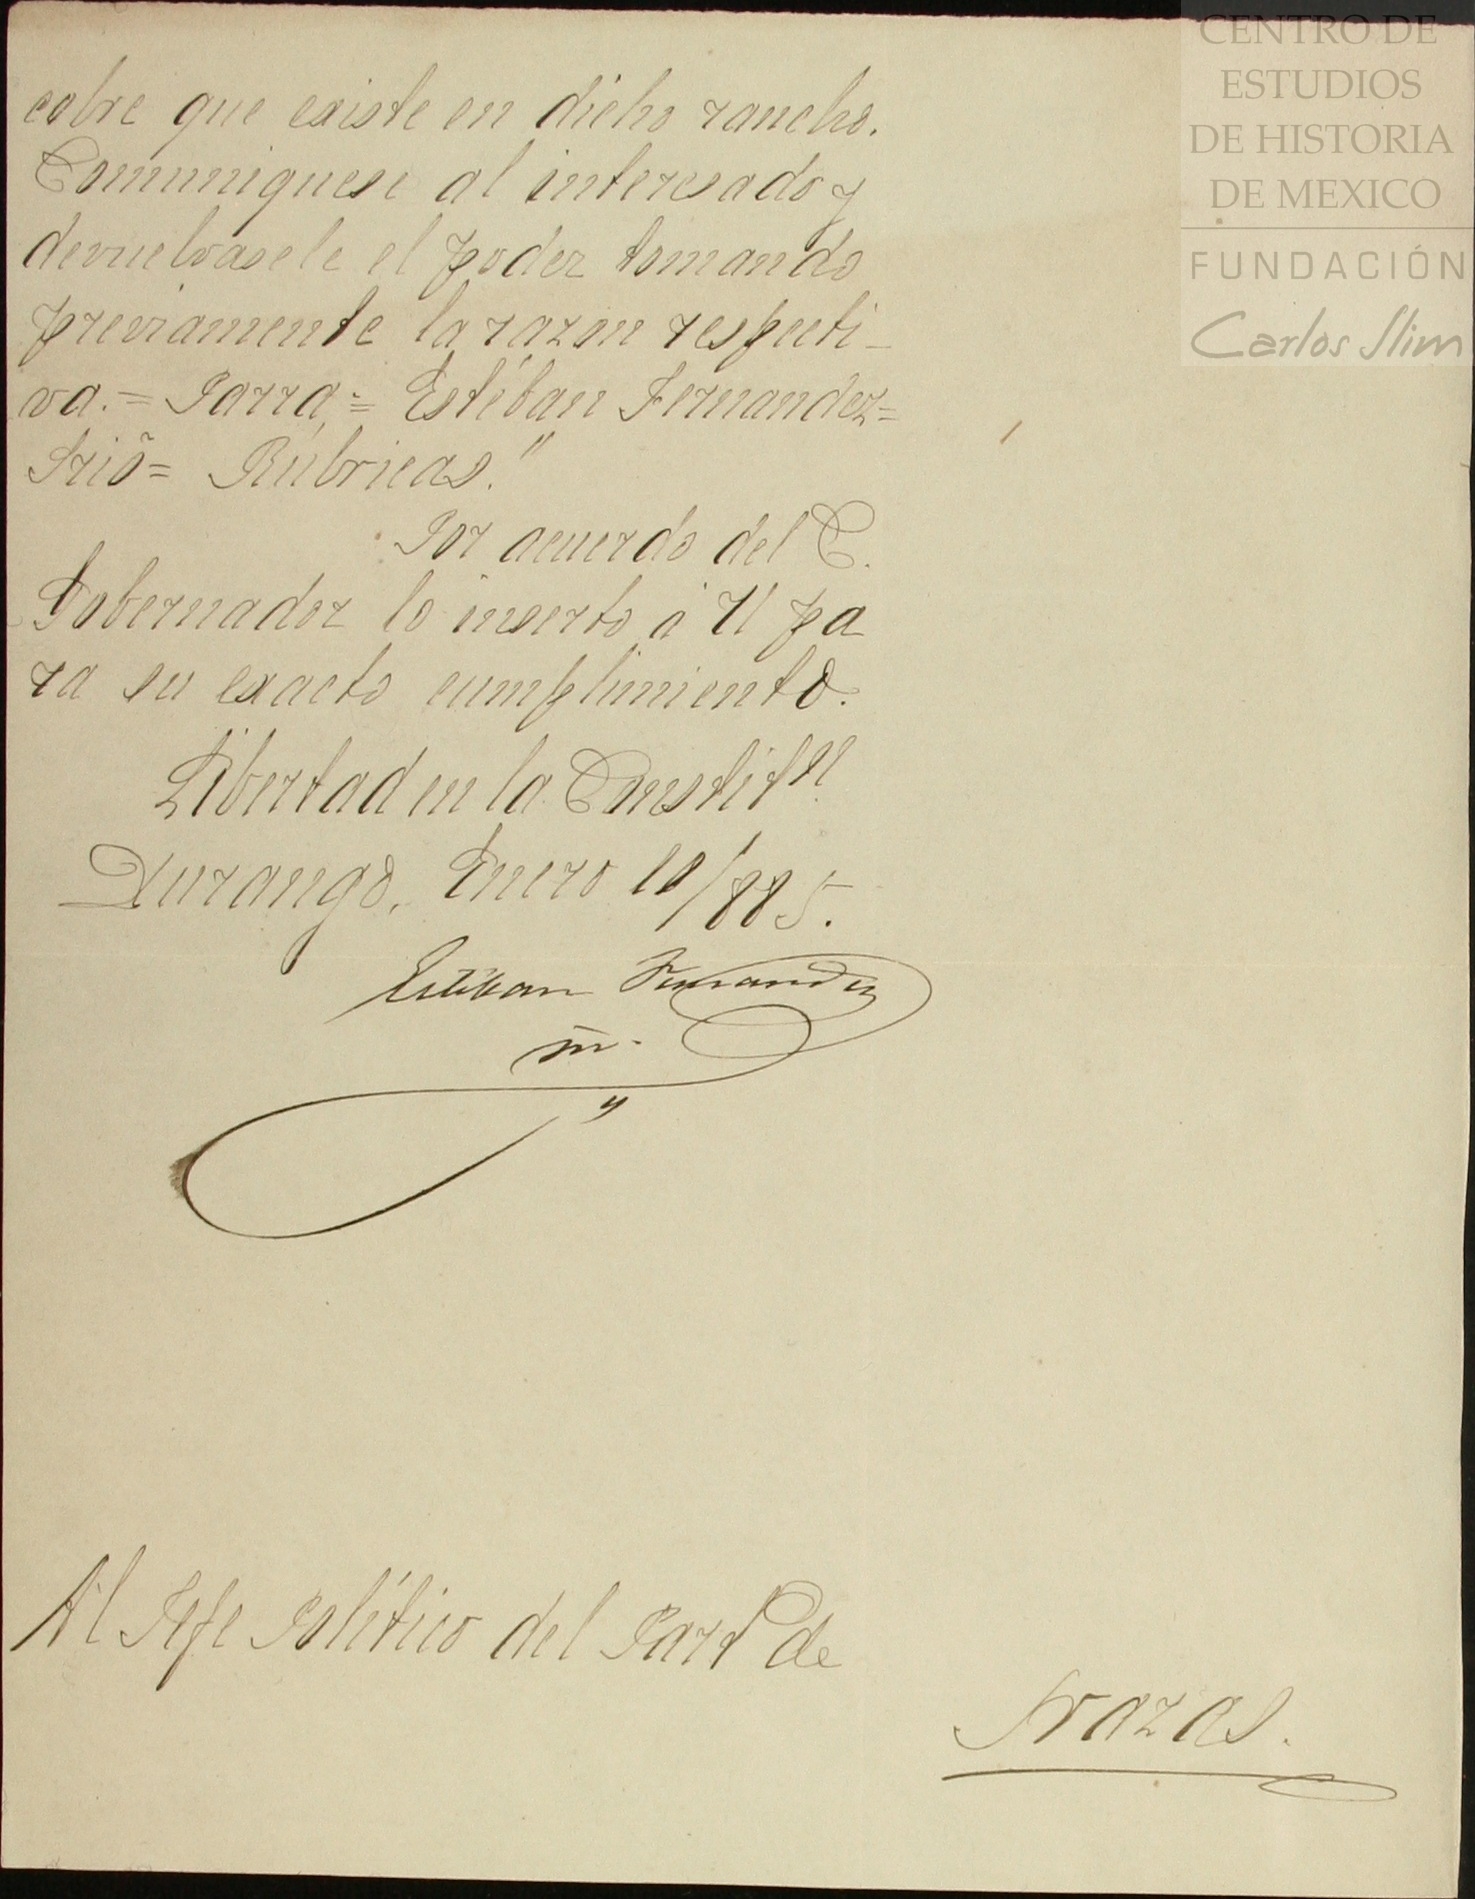 CENTRO DE
ESTUDIOS
DE HISTORIA
DE MEXICO
FUNDACIÓN
Carlos Slim
cobre que existe en dicho rancho.
Comuniquese al interesado y
devuelvasele el poder tomando
previamente la razon respecti-
va.= Parra,= Estéban Fernandez=
Srio= Rúbricas."
Por acuerdo del C.
Gobernador lo inserto á U pa
ra su exacto cumplimiento.
Libertad en la Constitn.
Durango, Enero 10/885.
Estéban Fernandez
Al Jefe Político del Parto de